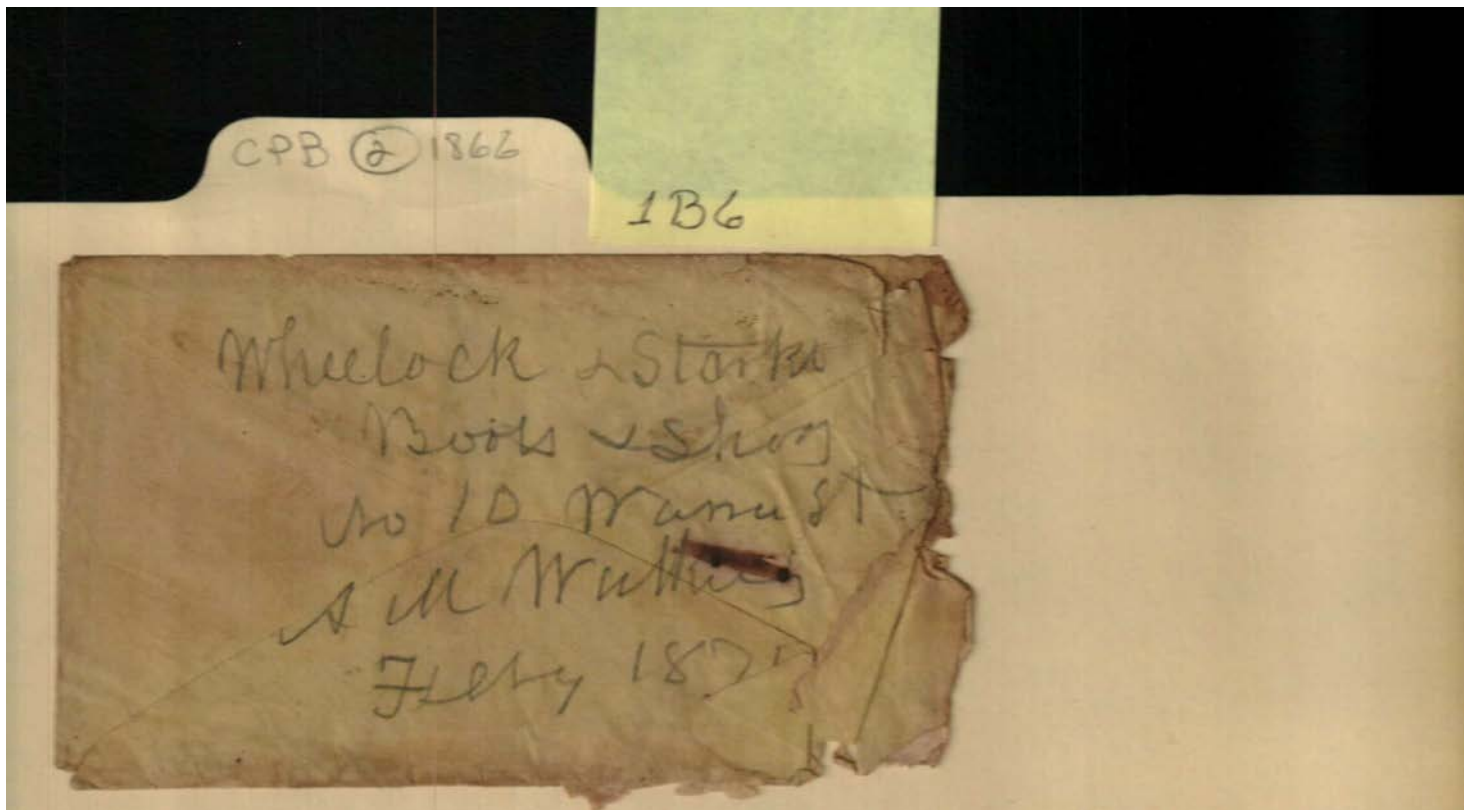 CPB ② 1866
1B6
Wheelock & Starks
Boots & Shoes
No 10 Warren St
A M Watkins
Feby 187